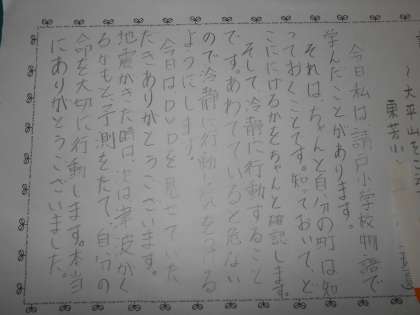 今日私は請戸小学校物語で
学んだことがあります。
それは、ちゃんと自分の町は知
っておくことです。知っておいて、ど
こににげるかをちゃんと確認します。
そして、冷静に行動すること
です。あわてていると危ない
ので冷静に行動し気を付ける
ようにします。
今日はDVDを見せていた
だきありがとうございました。
地震がきた時には津波がく
るかもと予測をたて、自分の
命を大切に行動します。本当
にありがとうございました。